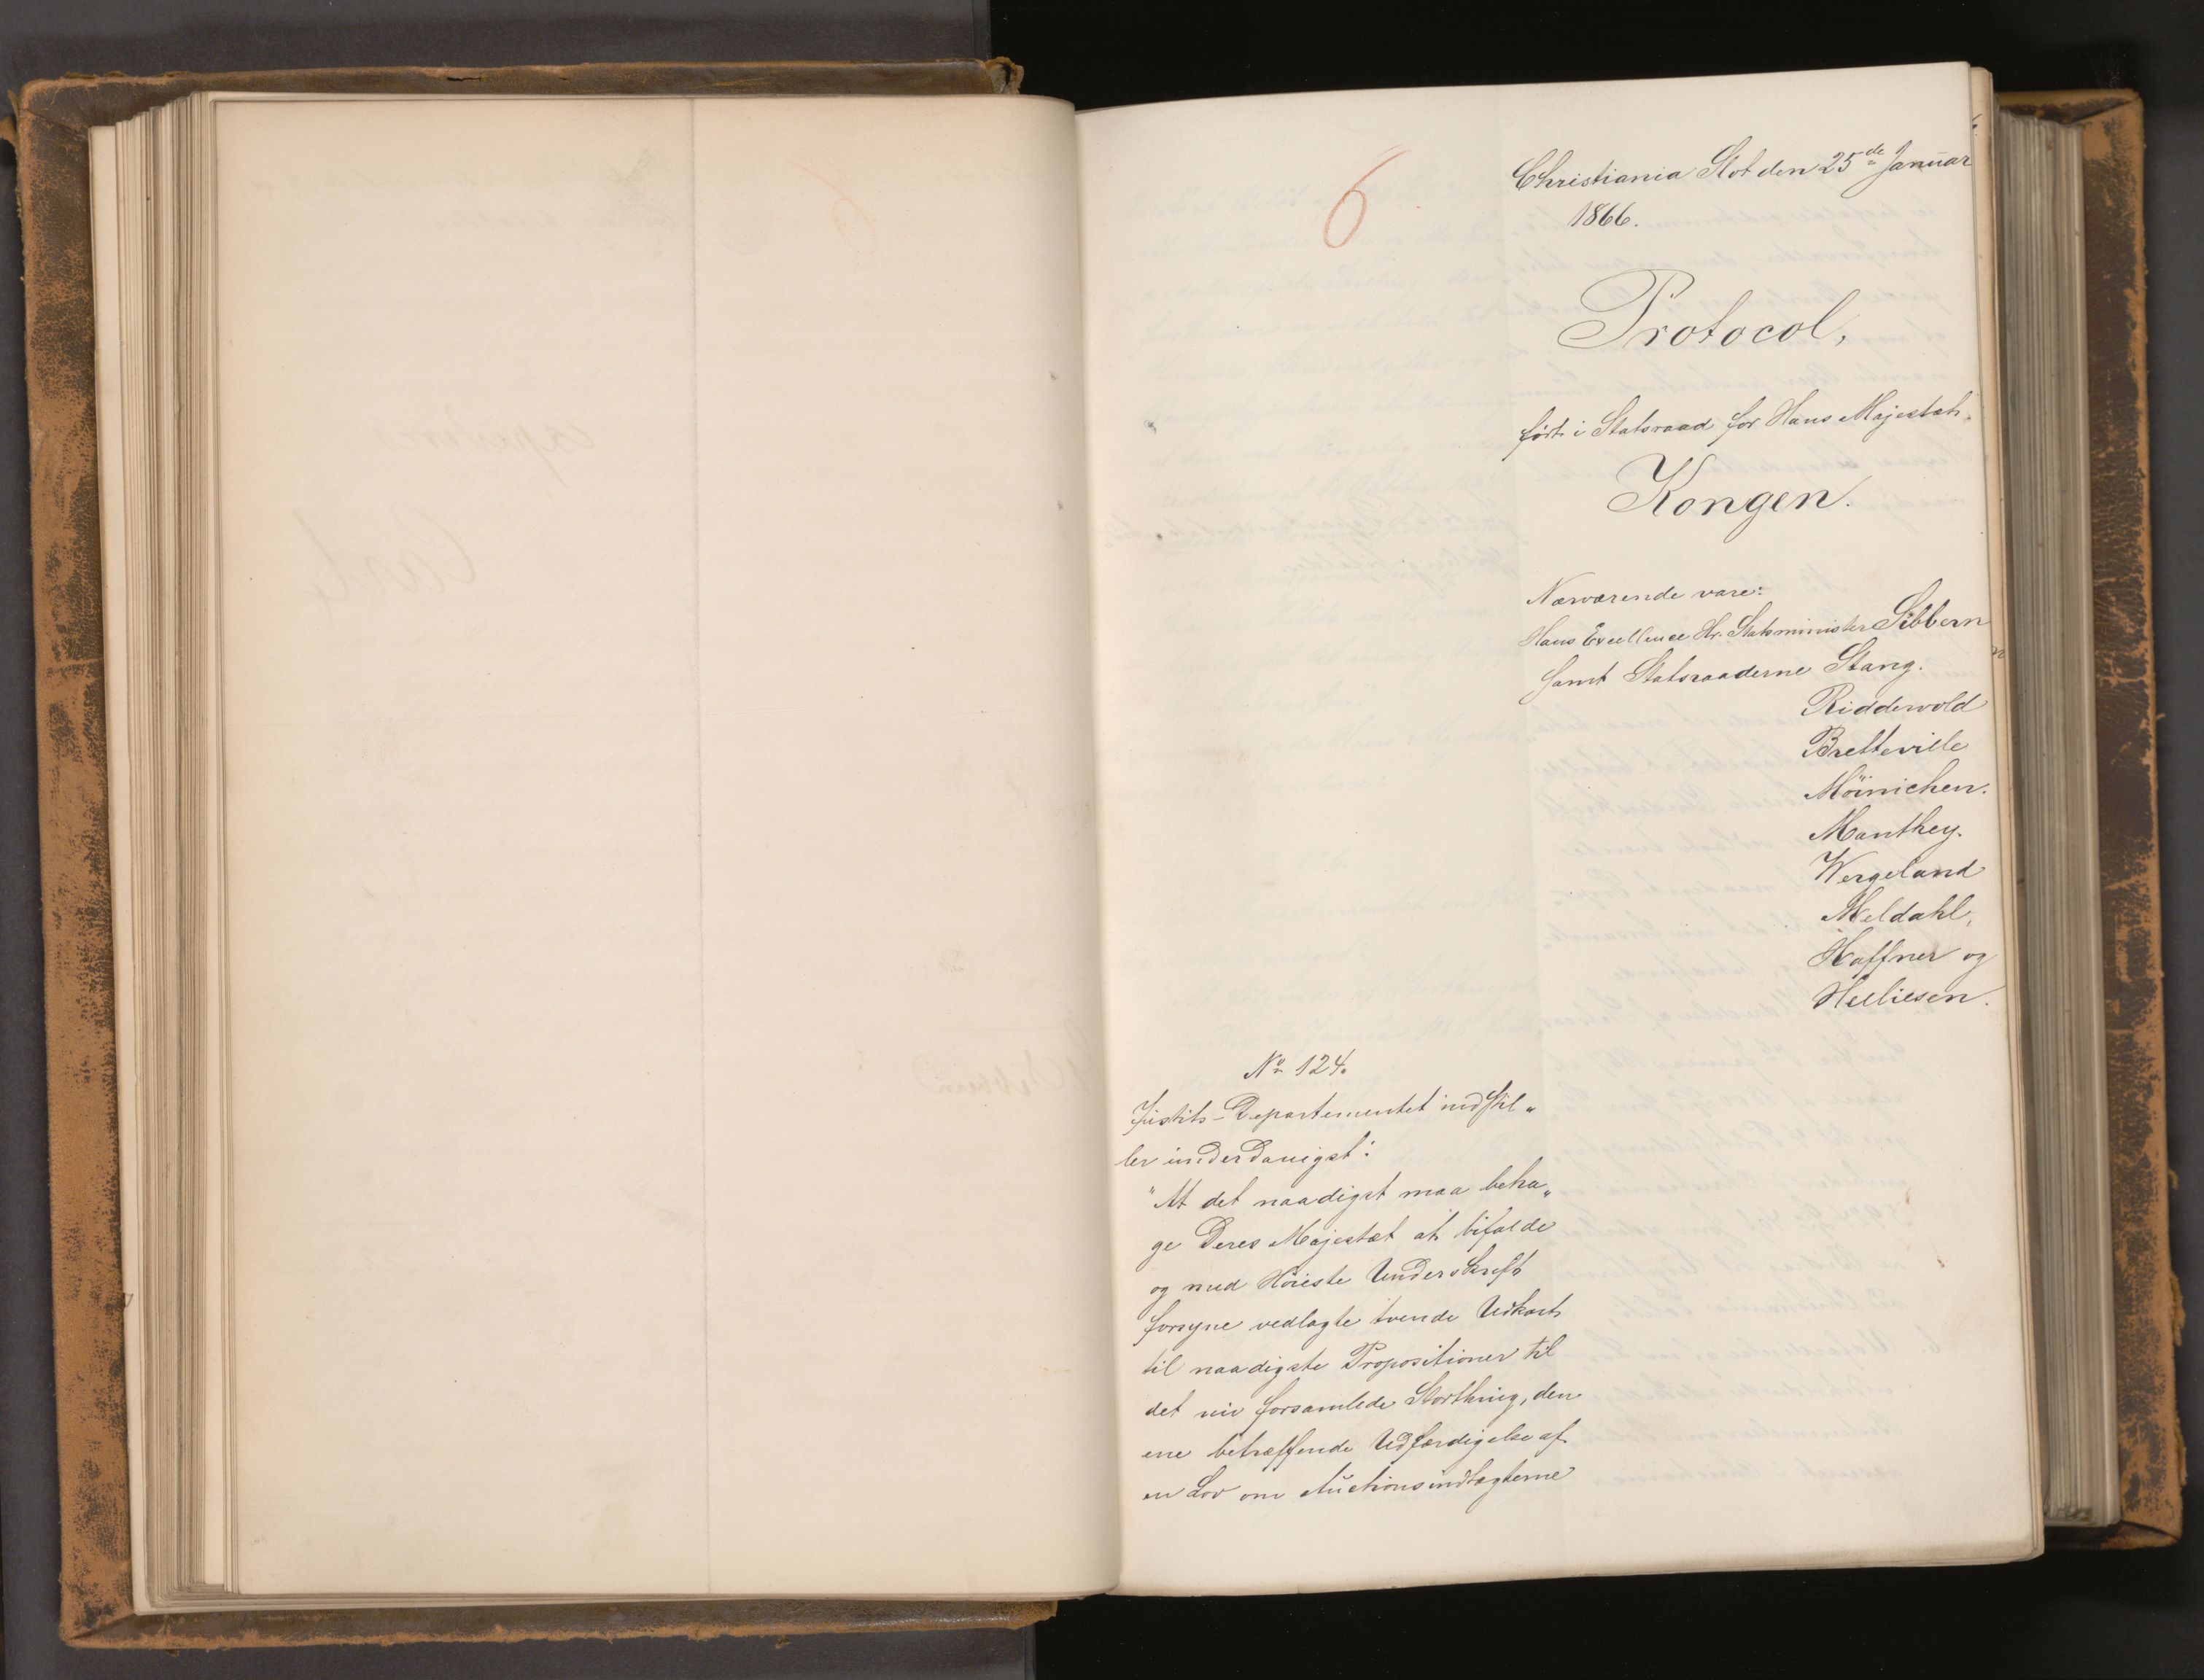 6
Christiania Slot den 25de Januar
1866.
Protocol,
ført i Statsraad for Hans Majestæt
Kongen.
Nærværende vare:
Hans Excellence Hr. Statsminister Sibbern
samt Statsraaderne Stang.
Riddervold
Bretteville
Möinichen.
Manthey.
Wergeland
Meldahl,
Haffner og
Helliesen.
No 124.
Justits-Departementet indstil„
ler underdanigst:
"At det naadigst maa beha„
ge Deres Majestæt at bifalde
og med Höieste Underskrift
forsyne vedlagte tvende Udkast
til naadigste Propositioner til
det nu forsamlede Storthing, den
ene betræffende Udfærdigelse af
en Lov om Auctionsindtægterne